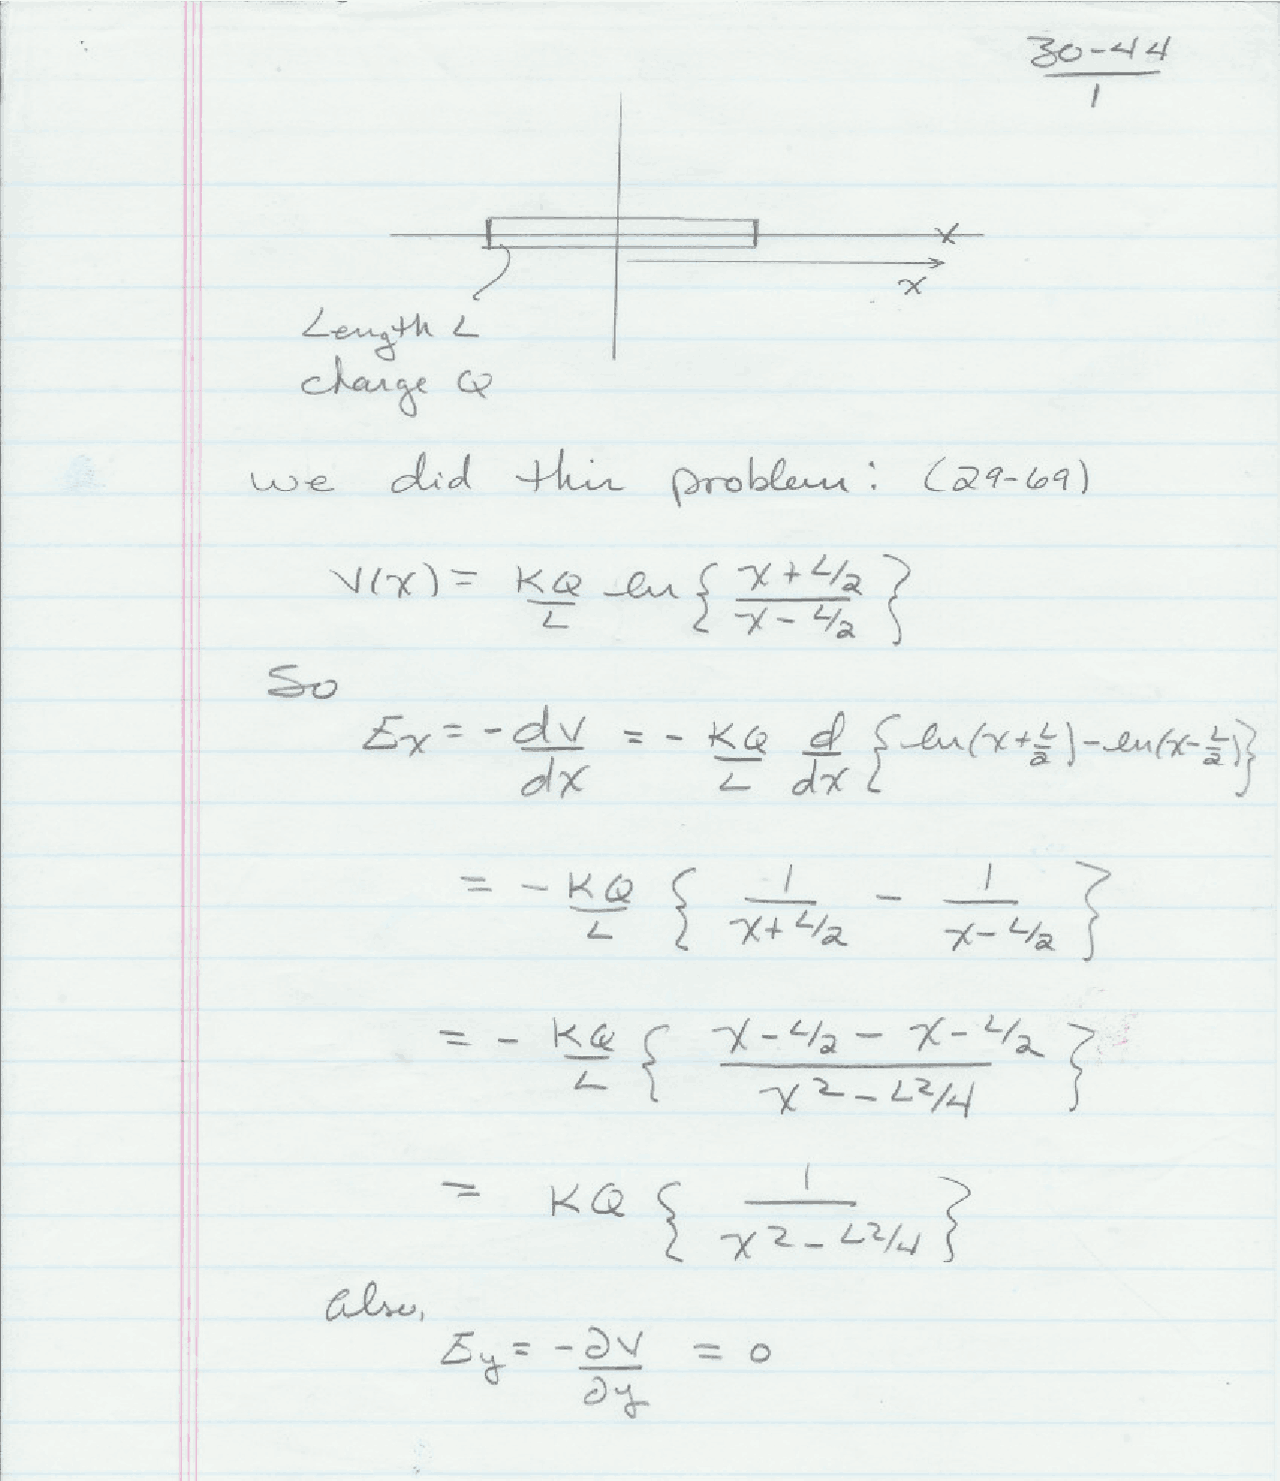 30-44
1
x
Length L
charge Q
we did this problem: (29-69)
V(x) = KQ/L ln{ (x + L/2)/(x - L/2) }
So
Ex = -dV/dx = - KQ/L d/dx { ln(x + L/2) - ln(x - L/2) }
= - KQ/L { 1/(x + L/2) - 1/(x - L/2) }
= - KQ/L { (x - L/2 - x - L/2)/(x² - L²/4) }
= KQ { 1/(x² - L²/4) }
Also,
Ey = -∂V/∂y = 0